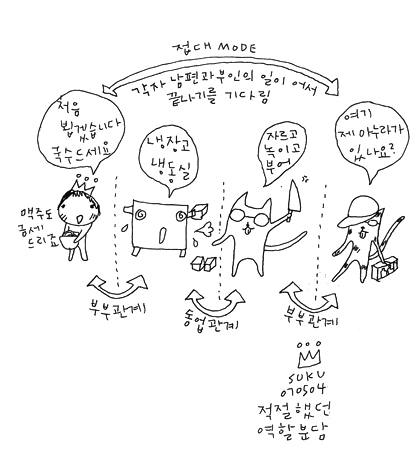 접대 MODE
각자 남편과 부인의 일이 어서
끝나기를 기다림
처음
뵙겠습니다
국수드세요
냉장고
냉동실
자르고
녹이고
부어
여기
제 마누라가
있나요?
맥주도
곧 세
드리죠
부부관계
동업관계
부부관계
SUKU
070504
적절했던
역할분담